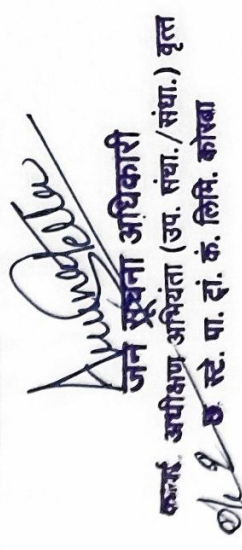 जन सूचना अधिकारी
कार्या. अधीक्षण अभियंता (उप. संधा./संचा.) वृत्त
छ. स्टे. पा. ट्रां. कं. लिमि. कोरबा